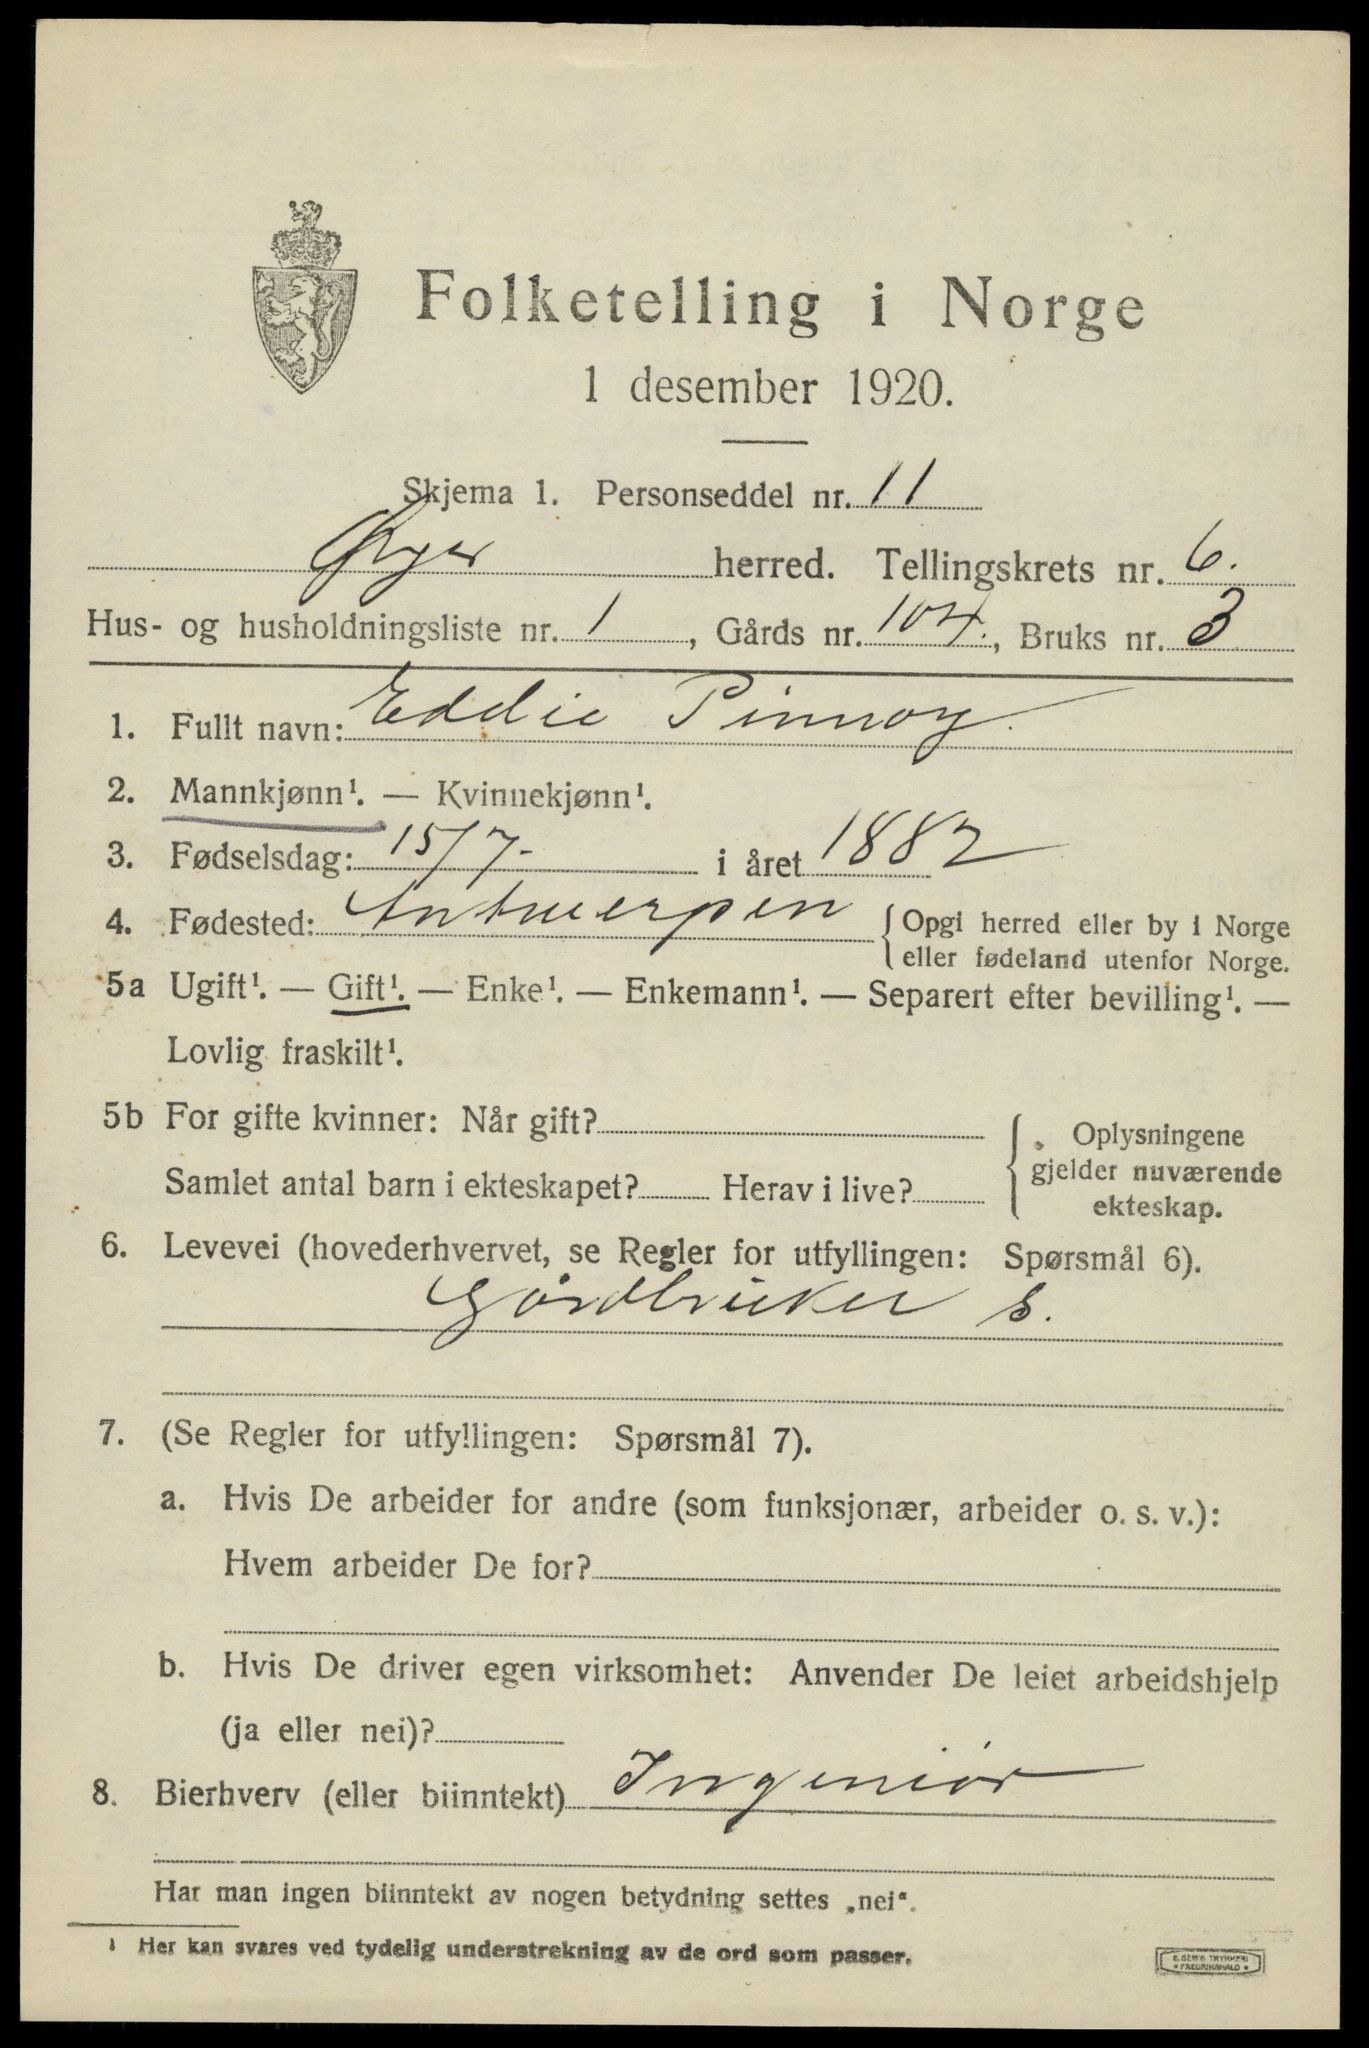 Folketelling i Norge
1 desember 1920.
Skjema 1. Personseddel nr. 11
herred. Tellingskrets nr. 6.
Hus- og husholdningsliste nr. 1, Gårds nr. 104., Bruks nr. 3
1. Fullt navn: Eddie Pinnoy.
2. Mannkjønn¹. — Kvinnekjønn¹.
3. Fødselsdag: 15/7- i året 1882
4. Fødested: Antwerpen { Opgi herred eller by i Norge
eller fødeland utenfor Norge.
5a Ugift¹. — Gift¹. — Enke¹. — Enkemann¹. — Separert efter bevilling¹. —
Lovlig fraskilt¹.
5b For gifte kvinner: Når gift?
Samlet antal barn i ekteskapet? Herav i live?
{ Oplysningene
gjelder nuværende
ekteskap.
6. Levevei (hovederhvervet, se Regler for utfyllingen: Spørsmål 6).
Gårdbruker s.
7. (Se Regler for utfyllingen: Spørsmål 7).
a. Hvis De arbeider for andre (som funksjonær, arbeider o. s. v.):
Hvem arbeider De for?
b. Hvis De driver egen virksomhet: Anvender De leiet arbeidshjelp
(ja eller nei)?
8. Bierhverv (eller biinntekt) Ingeniør
Har man ingen biinntekt av nogen betydning settes „nei“.
¹ Her kan svares ved tydelig understrekning av de ord som passer.
E. SEM'S TRYKKERI
• FREDRIKSHALD •